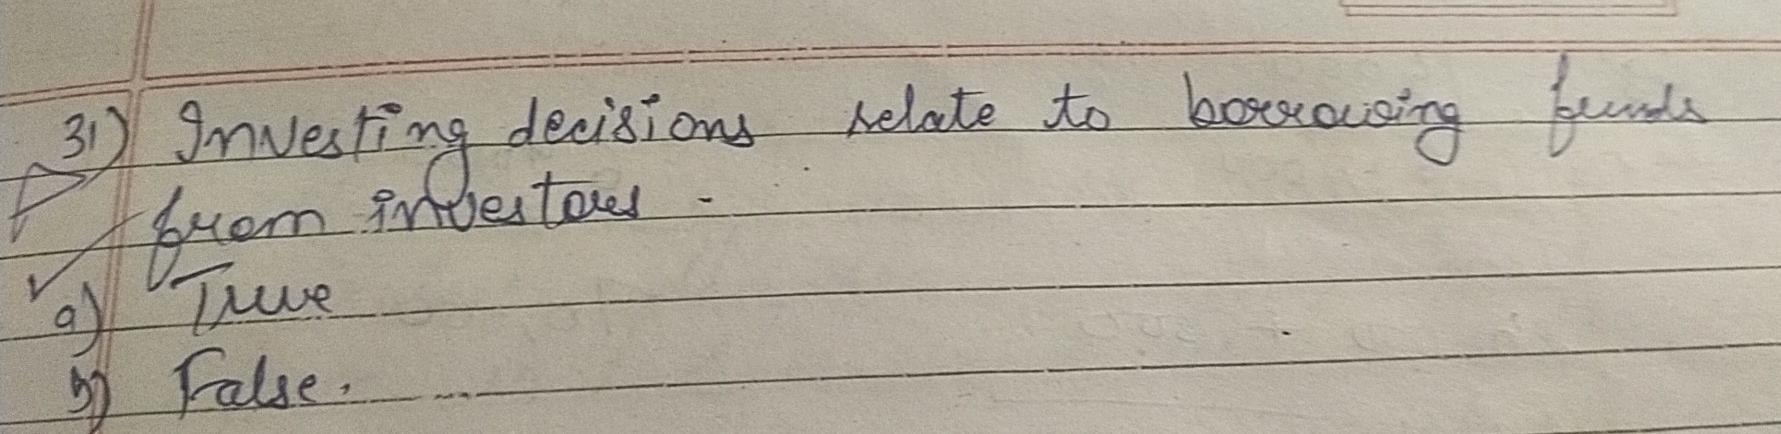 31) Investing decisions relate to borrowing funds
from investors.
a) True
b) False.